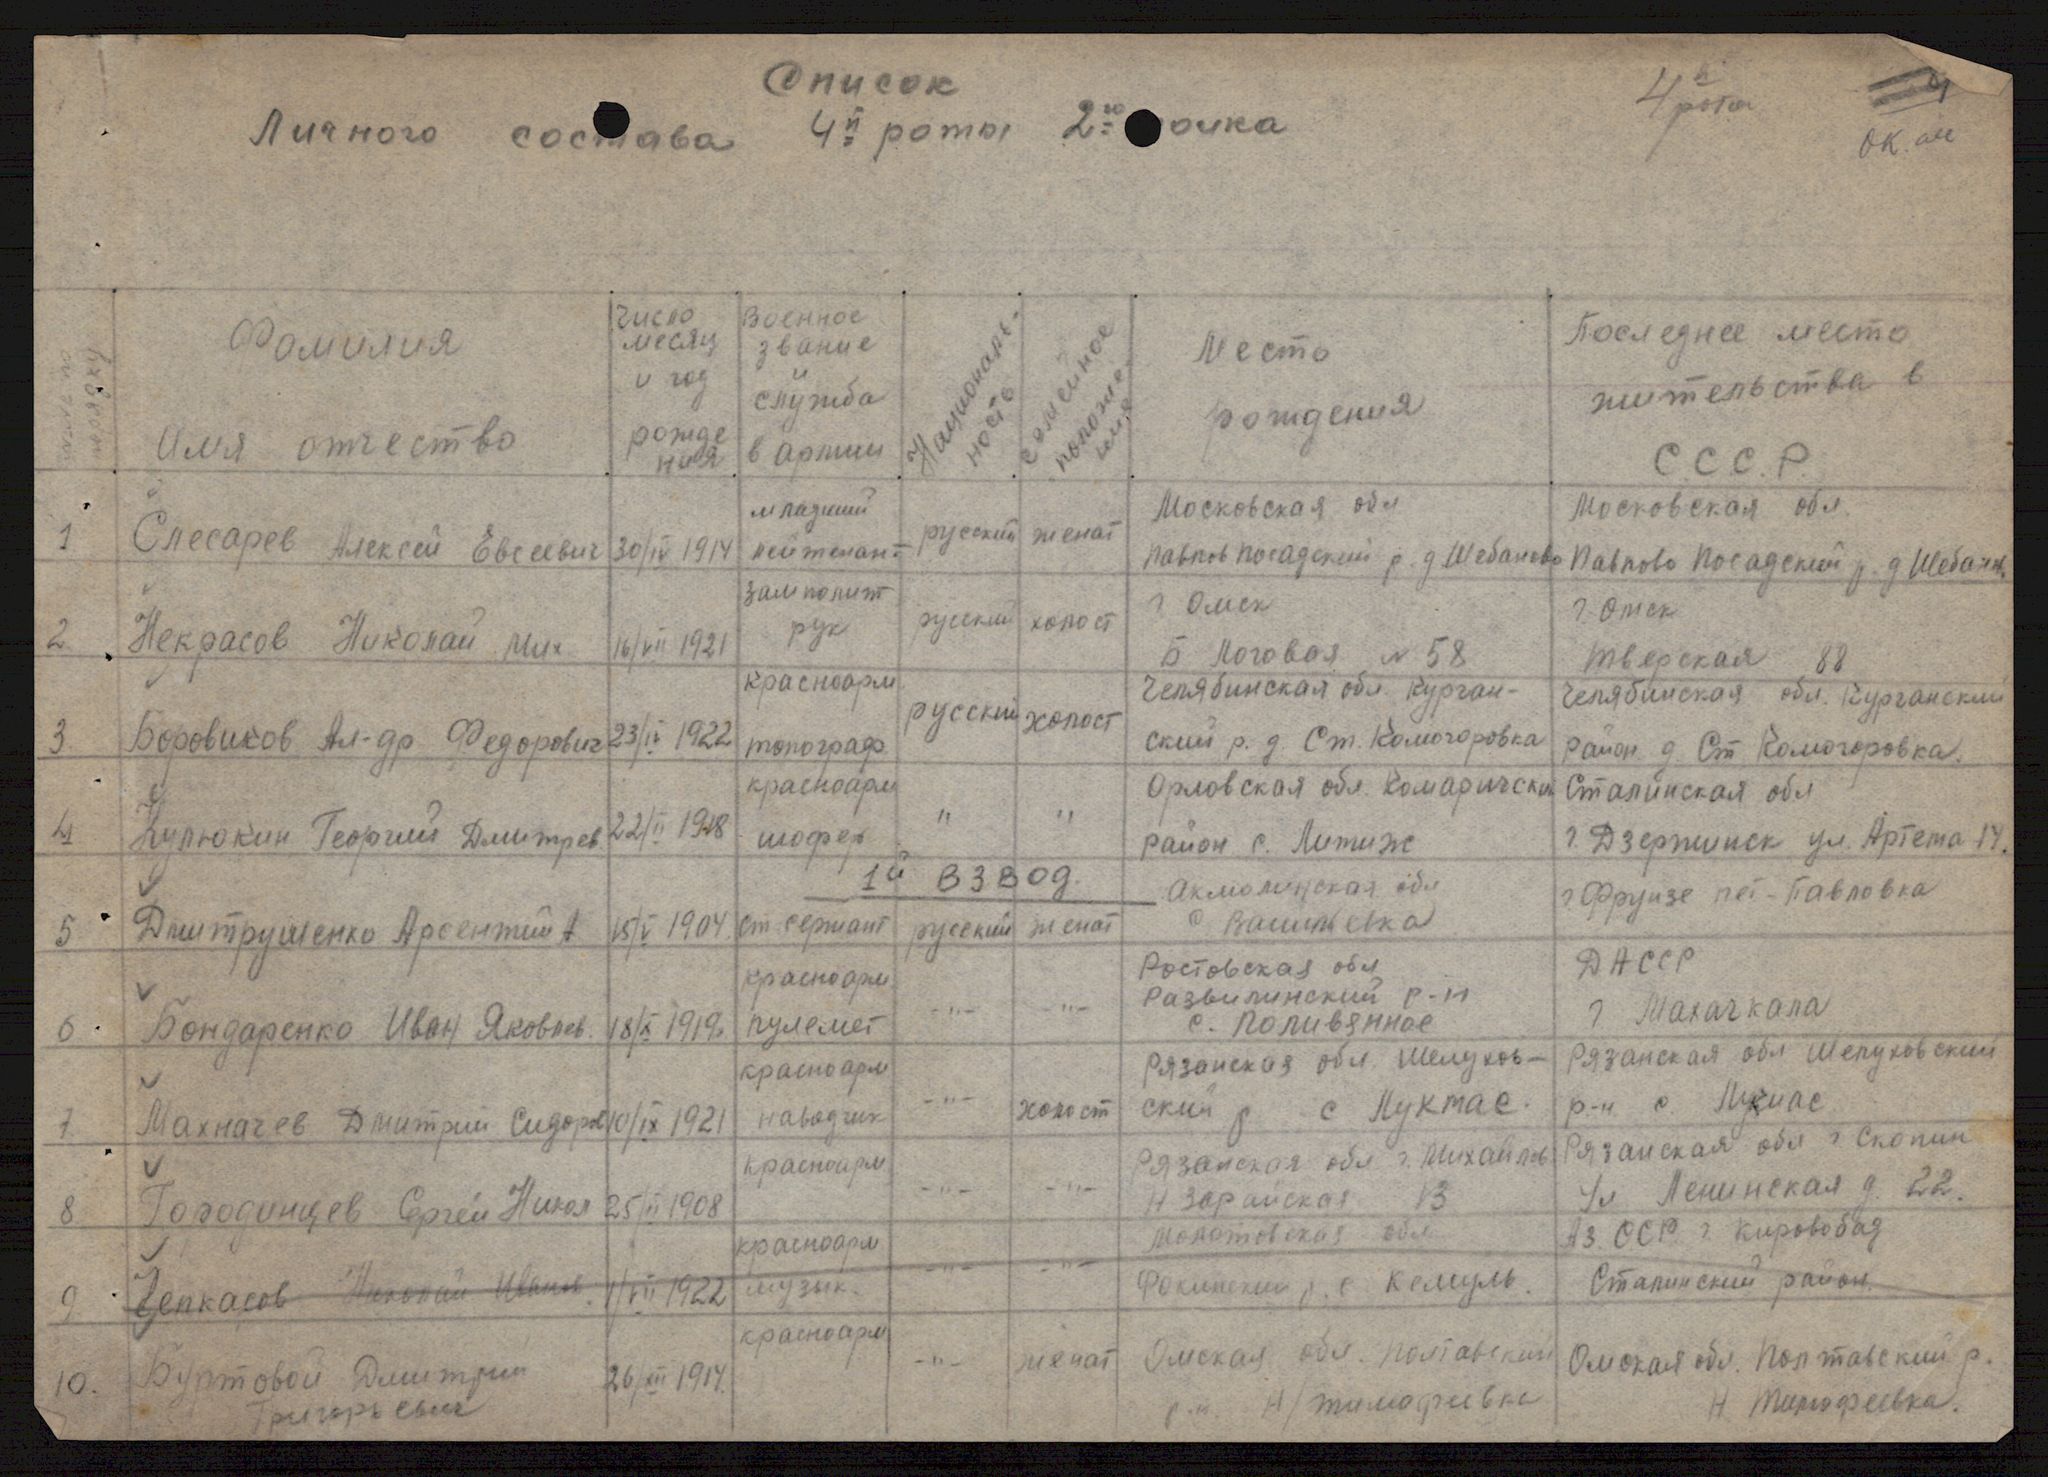 Список
Личного состава 4й роты 2го полка
4й рота
ок. ал
Фамилия
Имя отчество
Число месяц и год рождения
Военное звание и служба в армии
Националь-ность
Семейное положение
Место рождения
Последнее место жительства в С.С.С.Р.
1 Слесарев Алексей Евсеевич 30/IV 1914 младший лейтенант русский женат Московская обл Павлов Посадский р. д Шебаново Московская обл. Павлово Посадский р. д Шебанн.
2 Некрасов Николай Мих 16/VII 1921 замполит рук русский холост г Омск Б Логовая № 58 г. Омск Тверская 88
3. Боровиков Ал-др Федорович 23/IV 1922 красноарм топограф русский холост Челябинская обл. Курган-ский р. д. Ст. Комогоровка Челябинская обл. Курганский район д. Ст Комогоровка.
4 Кулюкин Георгий Дмитрев 22/II 1918 красноарм шофер " " Орловская обл. Комаричский район с. Литиж Сталинская обл г. Дзержинск ул. Артема 14.
1й взвод.
5 Дмитрушенко Арсентий А 15/V 1904 ст. сержант русский женат Акмолинская обл с Васильевка г Фрунзе пет-Павловка
6 Бондаренко Иван Яковлев. 18/X 1919 красноарм пулемет -"- -"- Ростовская обл Развилинский р-н с. Поливянное ДАССР г Махачкала
7. Махначев Дмитрий Сидоров 10/IX 1921 красноарм наводчик -"- холост Рязанская обл. Шелухов-ский р с Лукмас. Рязанская обл Шелуховский р-н с.
8 Городинцев Сергей Никол 25/II 1908 красноарм -"- -"- Рязанская обл г. Михайлов Н Зарайская 13 Рязанская обл г Скопин ул Ленинская д. 22.
9 Чепкасов Николай Иванов. 1/VII 1922 красноарм музык. -"- -"- Молотовская обл Фокинский р. с Кемуль. Аз. ССР г Кировобад Сталинский район.
10. Буртовой Дмитрий Григорьевич 26/XII 1914. красноарм -"- женат Омская обл. Полтавский р-н. Н/Тимофеевка Омская обл. Полтавский р. Н Тимофеевка.